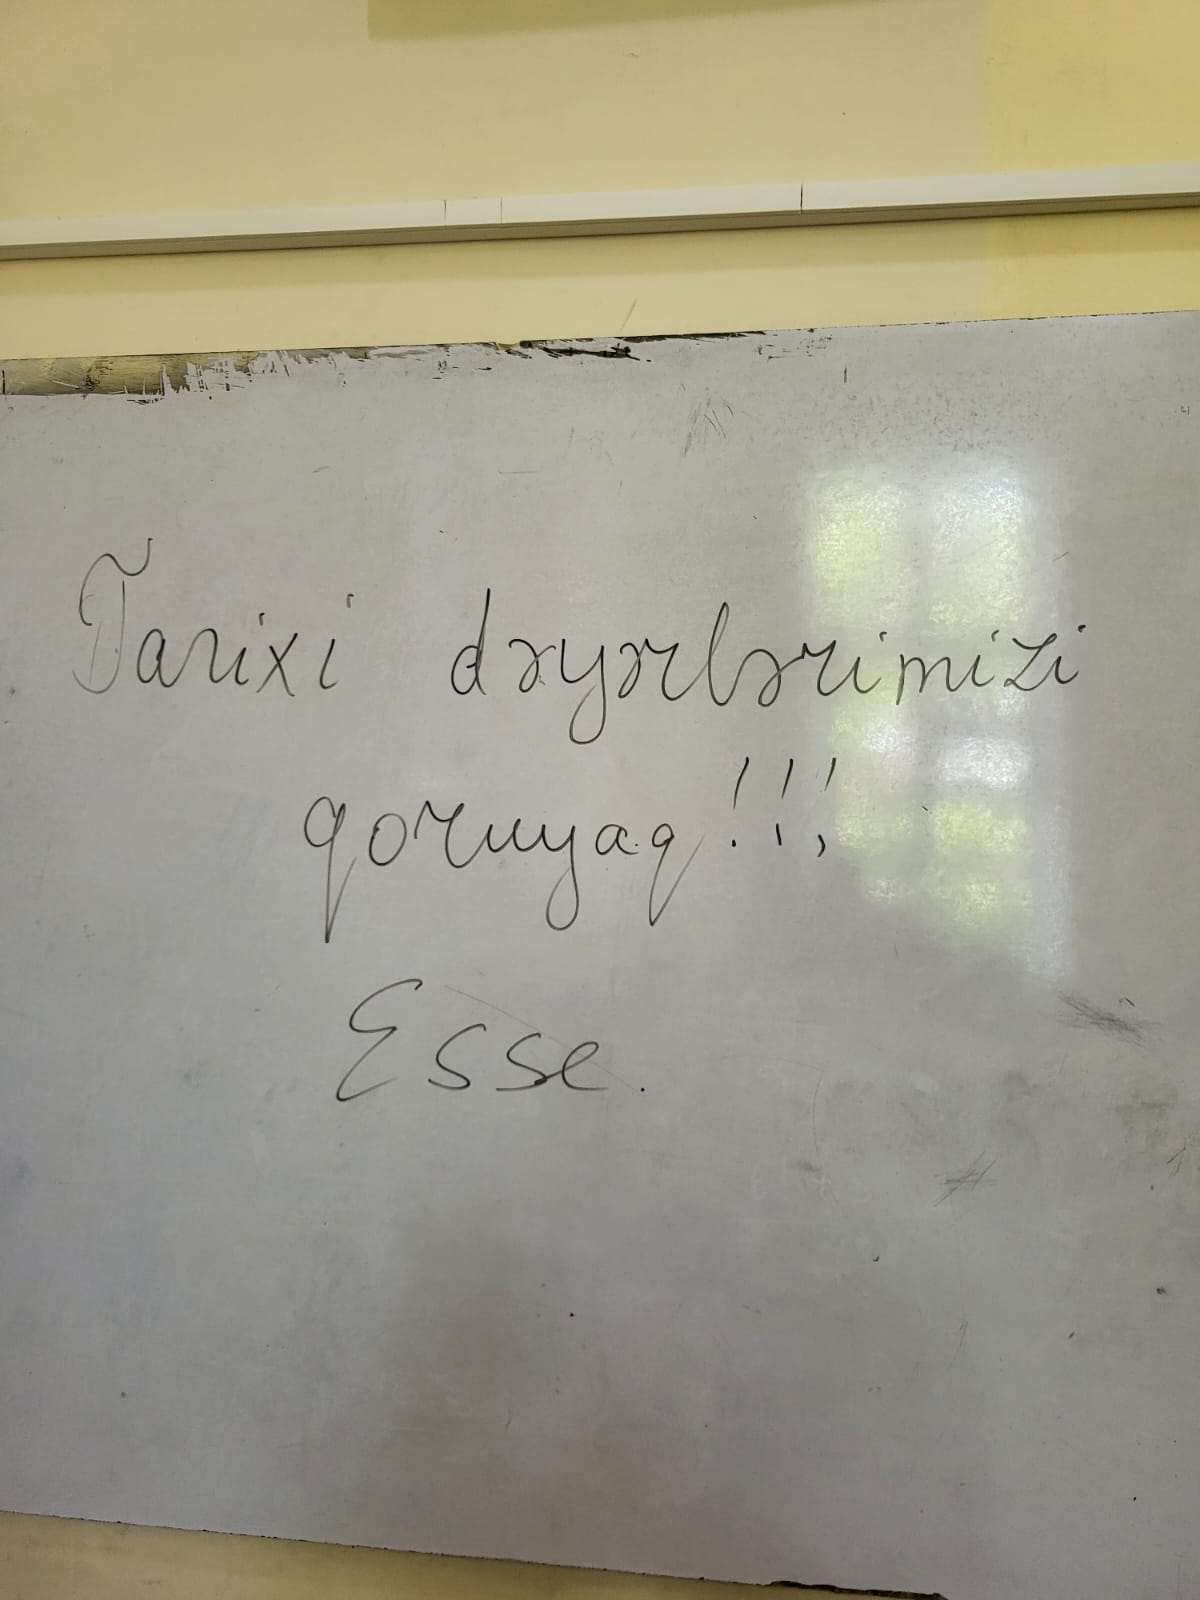 Tarixi dəyərlərimizi
qoruyaq!!!
Esse.